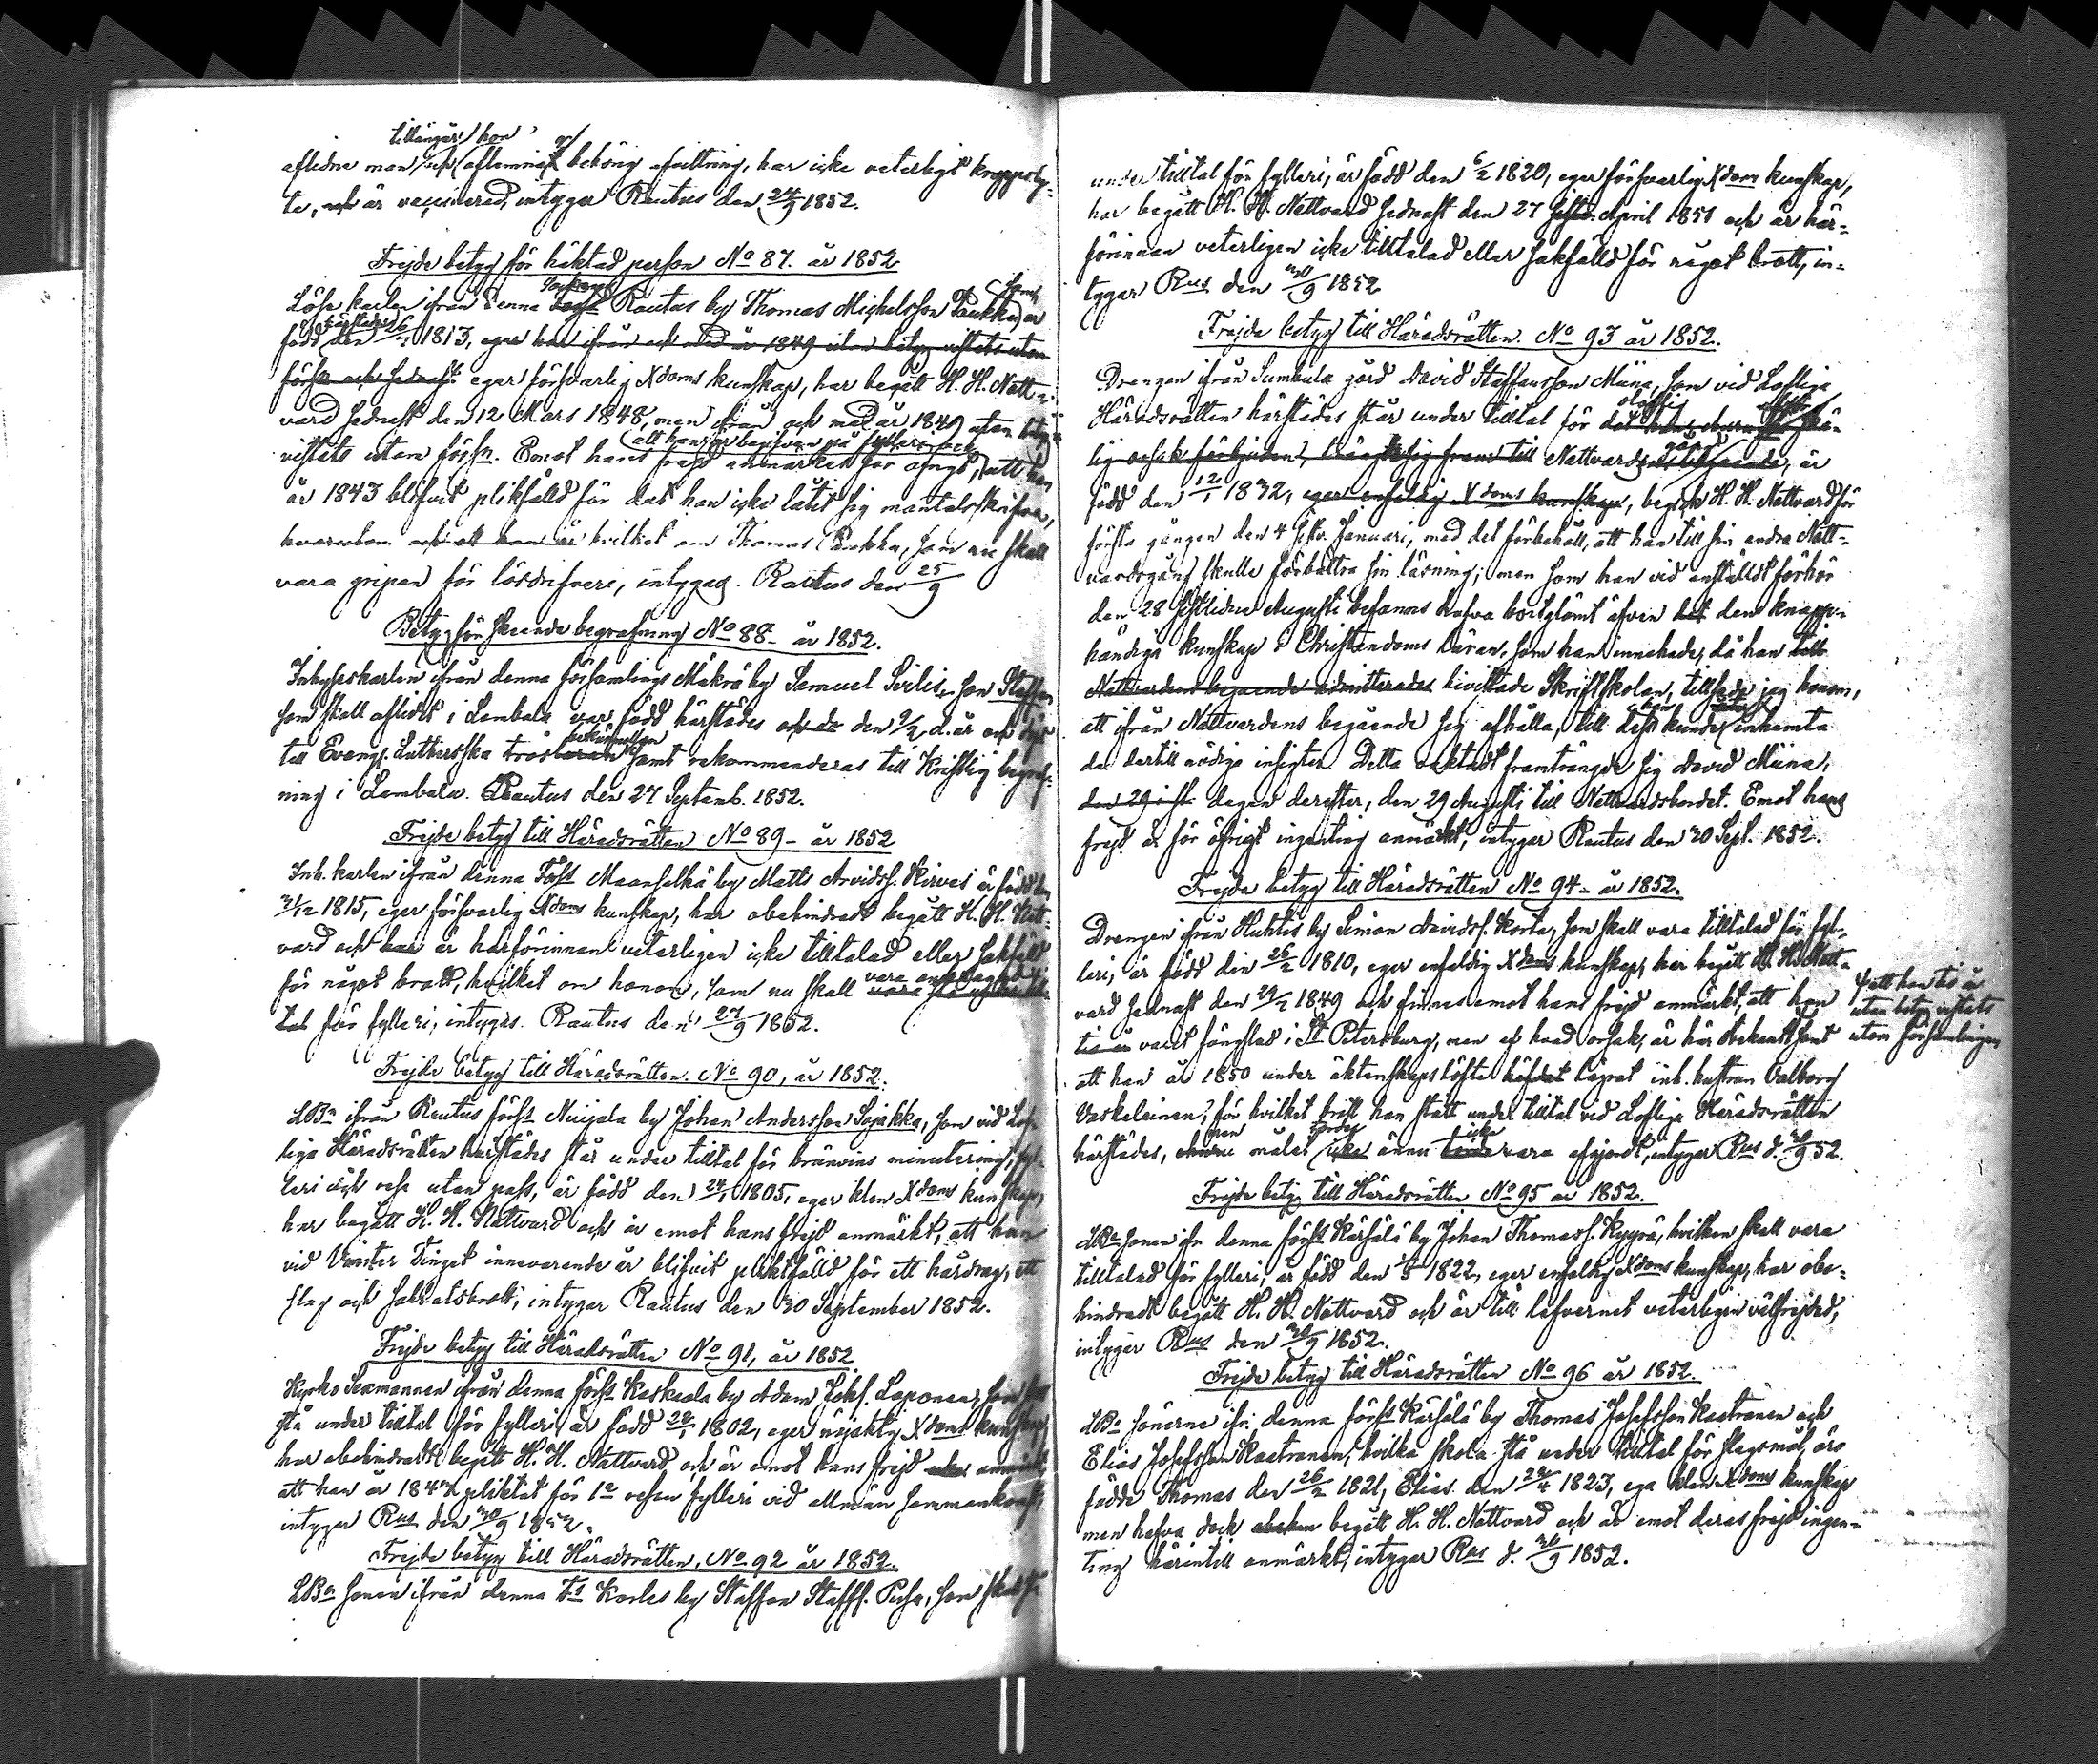 tillhörig hon
aflidne man och aflemnat behörig afvittring, har icke veterligt kroppsly-
te, och är vaccinerad, intygar Rautus den 24/9 1852.
Frejde betyg för häktad person No 87. år 1852
Löse karlen ifrån denna Sockens Rautus by Thomas Michelsson Paukku, som är
född härstädes den 26/ 1813, eger har ifrån och med år 1849 utan betyg vistats utom
förs:n och sednast eger försvarlig Xdoms kunskap, har begått H. H. Natt-
vard sednast den 12 Mars 1848, men ifrån och med år 1849 utan betyg
vistats utom förs:n. Emot hans frejd anmärkes för öfrigt, att han
att han är begifven på fylleri och
år 1843 blifvit plikfälld för det han icke låtit sig mantalsskrifva,
hvilket om Thomas Paukku, som nu skall
vara gripen för lösdrifveri, intygas. Rautus den 25/9
Betyg för skeende begrafning No 88. år 1852.
Inhyseskarlen ifrån denna församlings Mäkrä by Samuel son Staffan
som skall aflidit i Lembala var född härstädes den 9/2 d. år och
till Evang. Lutherska trosbekännelsen samt rekommenderas till Kristlig begraf-
ning i Lembala. Rautus den 27 Septemb. 1852.
Frejde betyg till Häradsrätten No 89 - år 1852
Inh. karlen ifrån denna Förs:s Maanselkä by Matts Arvidss. Kirves är född den
21/12 1815, eger försvarlig Xdoms kunskap, har obehindradt begått H. H. Natt-
vard och har är härförinnan veterligen icke tilltalad eller sakfälld
för något brott, hvilket om honom, som nu skall vara
tal för fylleri, intygas. Rautus den 27/9 1852.
Frejde betyg till Häradsrätten. No 90, år 1852.
LBn ifrån Rautus förs:s Nuijala by Johan Andersson Sojakka, som vid Lof-
liga Häradsrätten härstädes står under tilltal för bränvins minutering, fyl-
leri och resa utan pass, är född den 24/1 1805, eger klen Xdoms kunskap,
har begått H. H. Nattvard och är emot hans frejd anmärkt, att han
vid Vinter Tinget innevarande år blifvit pliktfälld för ett hårdrag, ett
slag och sabbatsbrott, intygar Rautus den 30 September 1852.
Frejde betyg till Häradsrätten No 91, år 1852
Kyrko Sexmannen ifrån denna förs:s Keskeala by Adam Josefs. Laponen, som
stå under tilltal för fylleri, är född 1802, eger nöjaktig Xdoms kunskap,
har obehindradt begått H. H. Nattvard och är emot hans frejd anmärkt,
att han år 1847 pliktat för 1a resan fylleri vid allmän sammankomst,
intygar Rus den 30/9 1852.
Frejde betyg till Häradsrätten, No 92 år 1852.
LBn sonen ifrån denna Fs Korles by Staffan Staffs. Pusa, som skall stå
under tilltal för fylleri, är född den 6/2 1820, eger försvarlig Xdoms kunskap,
har begått H. H. Nattvard sednast den 27 April 1851 och är här-
förinnan veterligen icke tilltalad eller sakfälld för något brott, in-
tygar Rus den 30/9 1852
Frejde betyg till Häradsrätten. No 93 år 1852.
Drengen ifrån Sumbula gård David Staffansson Müna, som vid Lofliga
Häradsrätten härstädes står under tilltal för
Nattvardsgång, är
född den 12/1 1832, eger enfaldig Xdoms kunskap, begick H. H. Nattvard för
första gången den 4 sistl. Januari, med det förbehåll, att han till sin andra Natt-
vardsgång skulle förbättra sin läsning; men som han vid anställdt förhör
den 28 sistlidne Augusti befanns hafva bortglömt äfven det den knapp-
händiga kunskap i Christendoms Läran, som han innehade, då han
Nattvardens begående admitterades bivistade Skriftskolan, tillsade jag honom,
att ifrån Nattvardens begående sig afhålla, till dess han kunde inhemta
de dertill nödiga insigter. Detta oaktadt framträngde sig David Müna,
den 29 dagen derefter, den 29 Augusti till Nattvardsbordet. Emot hans
frejd är för öfrigt ingenting anmärkt, intygar Rautus den 30 Sept. 1852.
Frejde betyg till Häradsrätten No 94 - år 1852.
Drengen ifrån Huhtis by Simon Davidss. Korta, som skall vara tilltalad för fyl-
leri, är född den 26/2 1810, eger enfaldig Xdoms kunskap, har begått H. H. Natt-
vard sednast den 24/2 1849 och finnes emot hans frejd anmärkt, att han
att han tio år
utan betyg vistats
utom församlingen
tio år varit fängslad i St Petersburg, men af hvad orsak, är här obekant samt
att han år 1850 under äktenskaps löfte häfdat lägrat inh. hustrun Valborg
Vaskelainen, för hvilket brott han stått under tilltal vid Lofliga Häradsrätten
härstädes, men målet torde ännu icke vara afgjordt, intygar Rus d. 30/9 52.
Frejde betyg till Häradsrätten No 95 år 1852.
LBn sonen ifr. denna förs:s Kärsälä by Johan Thomass. Kyyrä, hvilken skall vara
tilltalad för fylleri, är född den 1/5 1822, eger enfaldig Xdoms kunskap, har obe-
hindradt begått H. H. Nattvard och är till lefvernet veterligen välfrejdad,
intygar Rus den 30/9 1852.
Frejde betyg till Häradsrätten No 96 år 1852.
LBn sönerne ifr. denna förs:s Kärsälä by Thomas Josefsson Kaatranen och
Elias Josefsson Kaatranen, hvilka skola stå under tilltal för slagsmål, äro
födde Thomas den 26/2 1821, Elias den 1823, ega klen Xdoms kunskap
men hafva dock begått H. H. Nattvard och är emot deras frejd ingen-
ting härintill anmärkt, intygar Rus d. 30/9 1852.